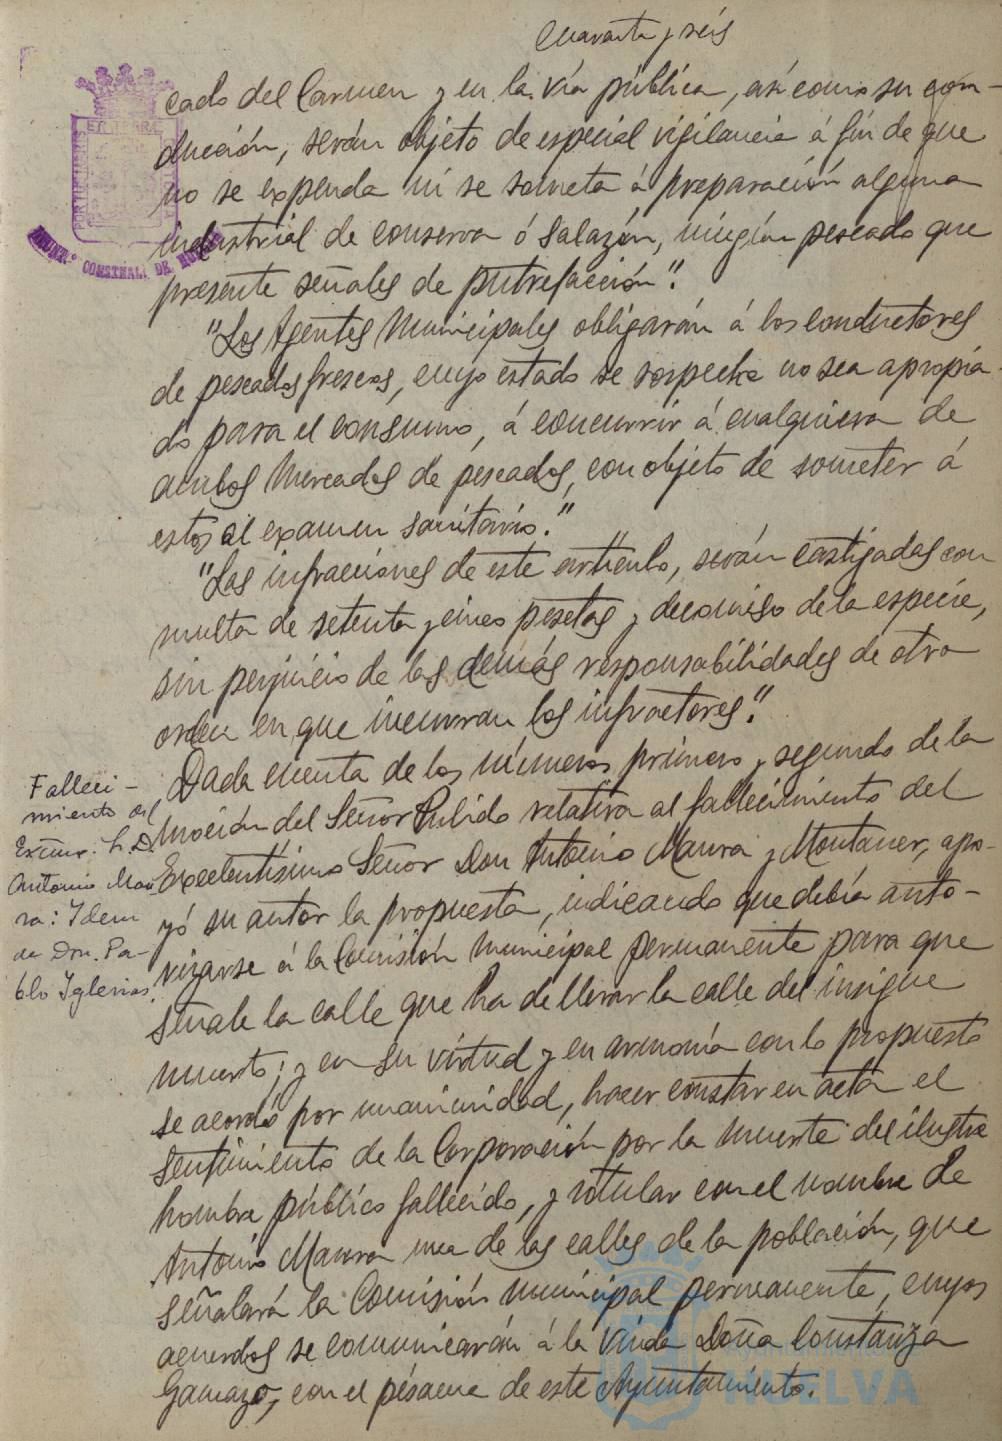 Cuarenta y seis
cado del Carmen y en la vía pública, así como su con-
ducción, serán objeto de especial vigilancia á fin de que
no se expenda ni se someta á preparación alguna
industrial de conserva ó salazón, ningún pescado que
presente señales de putrefacción".
"Los Agentes Municipales obligarán á los conductores
de pescados frescos, cuyo estado se sospeche no sea apropia-
do para el consumo, á concurrir á cualquiera de
ambos Mercados de pescados, con objeto de someter á
estos al examen sanitario."
"Las infracciones de este artículo, serán castigadas con
multa de setenta y cinco pesetas y decomiso de la especie,
sin perjuicio de las demás responsabilidades de otro
orden en que incurran los infractores".
Dada cuenta de los números primero y segundo de la
moción del Señor Pulido relativa al fallecimiento del
Excelentísimo Señor Don Antonio Maura y Montaner, apo-
yó su autor la propuesta, indicando que debía auto-
rizarse á la Comisión municipal permanente para que
señale la calle que ha de llevar la calle del insigne
muerto; y en su virtud y en armonía con lo propuesto
se acordó por unanimidad, hacer constar en acta el
sentimiento de la Corporación por la muerte del ilustre
hombre público fallecido, y rotular con el nombre de
Antonio Maura una de las calles de la población, que
señalará la Comisión municipal permanente, cuyos
acuerdos se comunicarán á la Viuda Doña Constanza
Gamazo, con el pésame de este Ayuntamiento.
Falleci-
miento del
Excmo. S. D.
Antonio Mau
ra: Idem
de Don Pa-
blo Iglesias.
AYUNT.º CONSTNAL. DE HUELVA
Ayuntamiento de
HUELVA